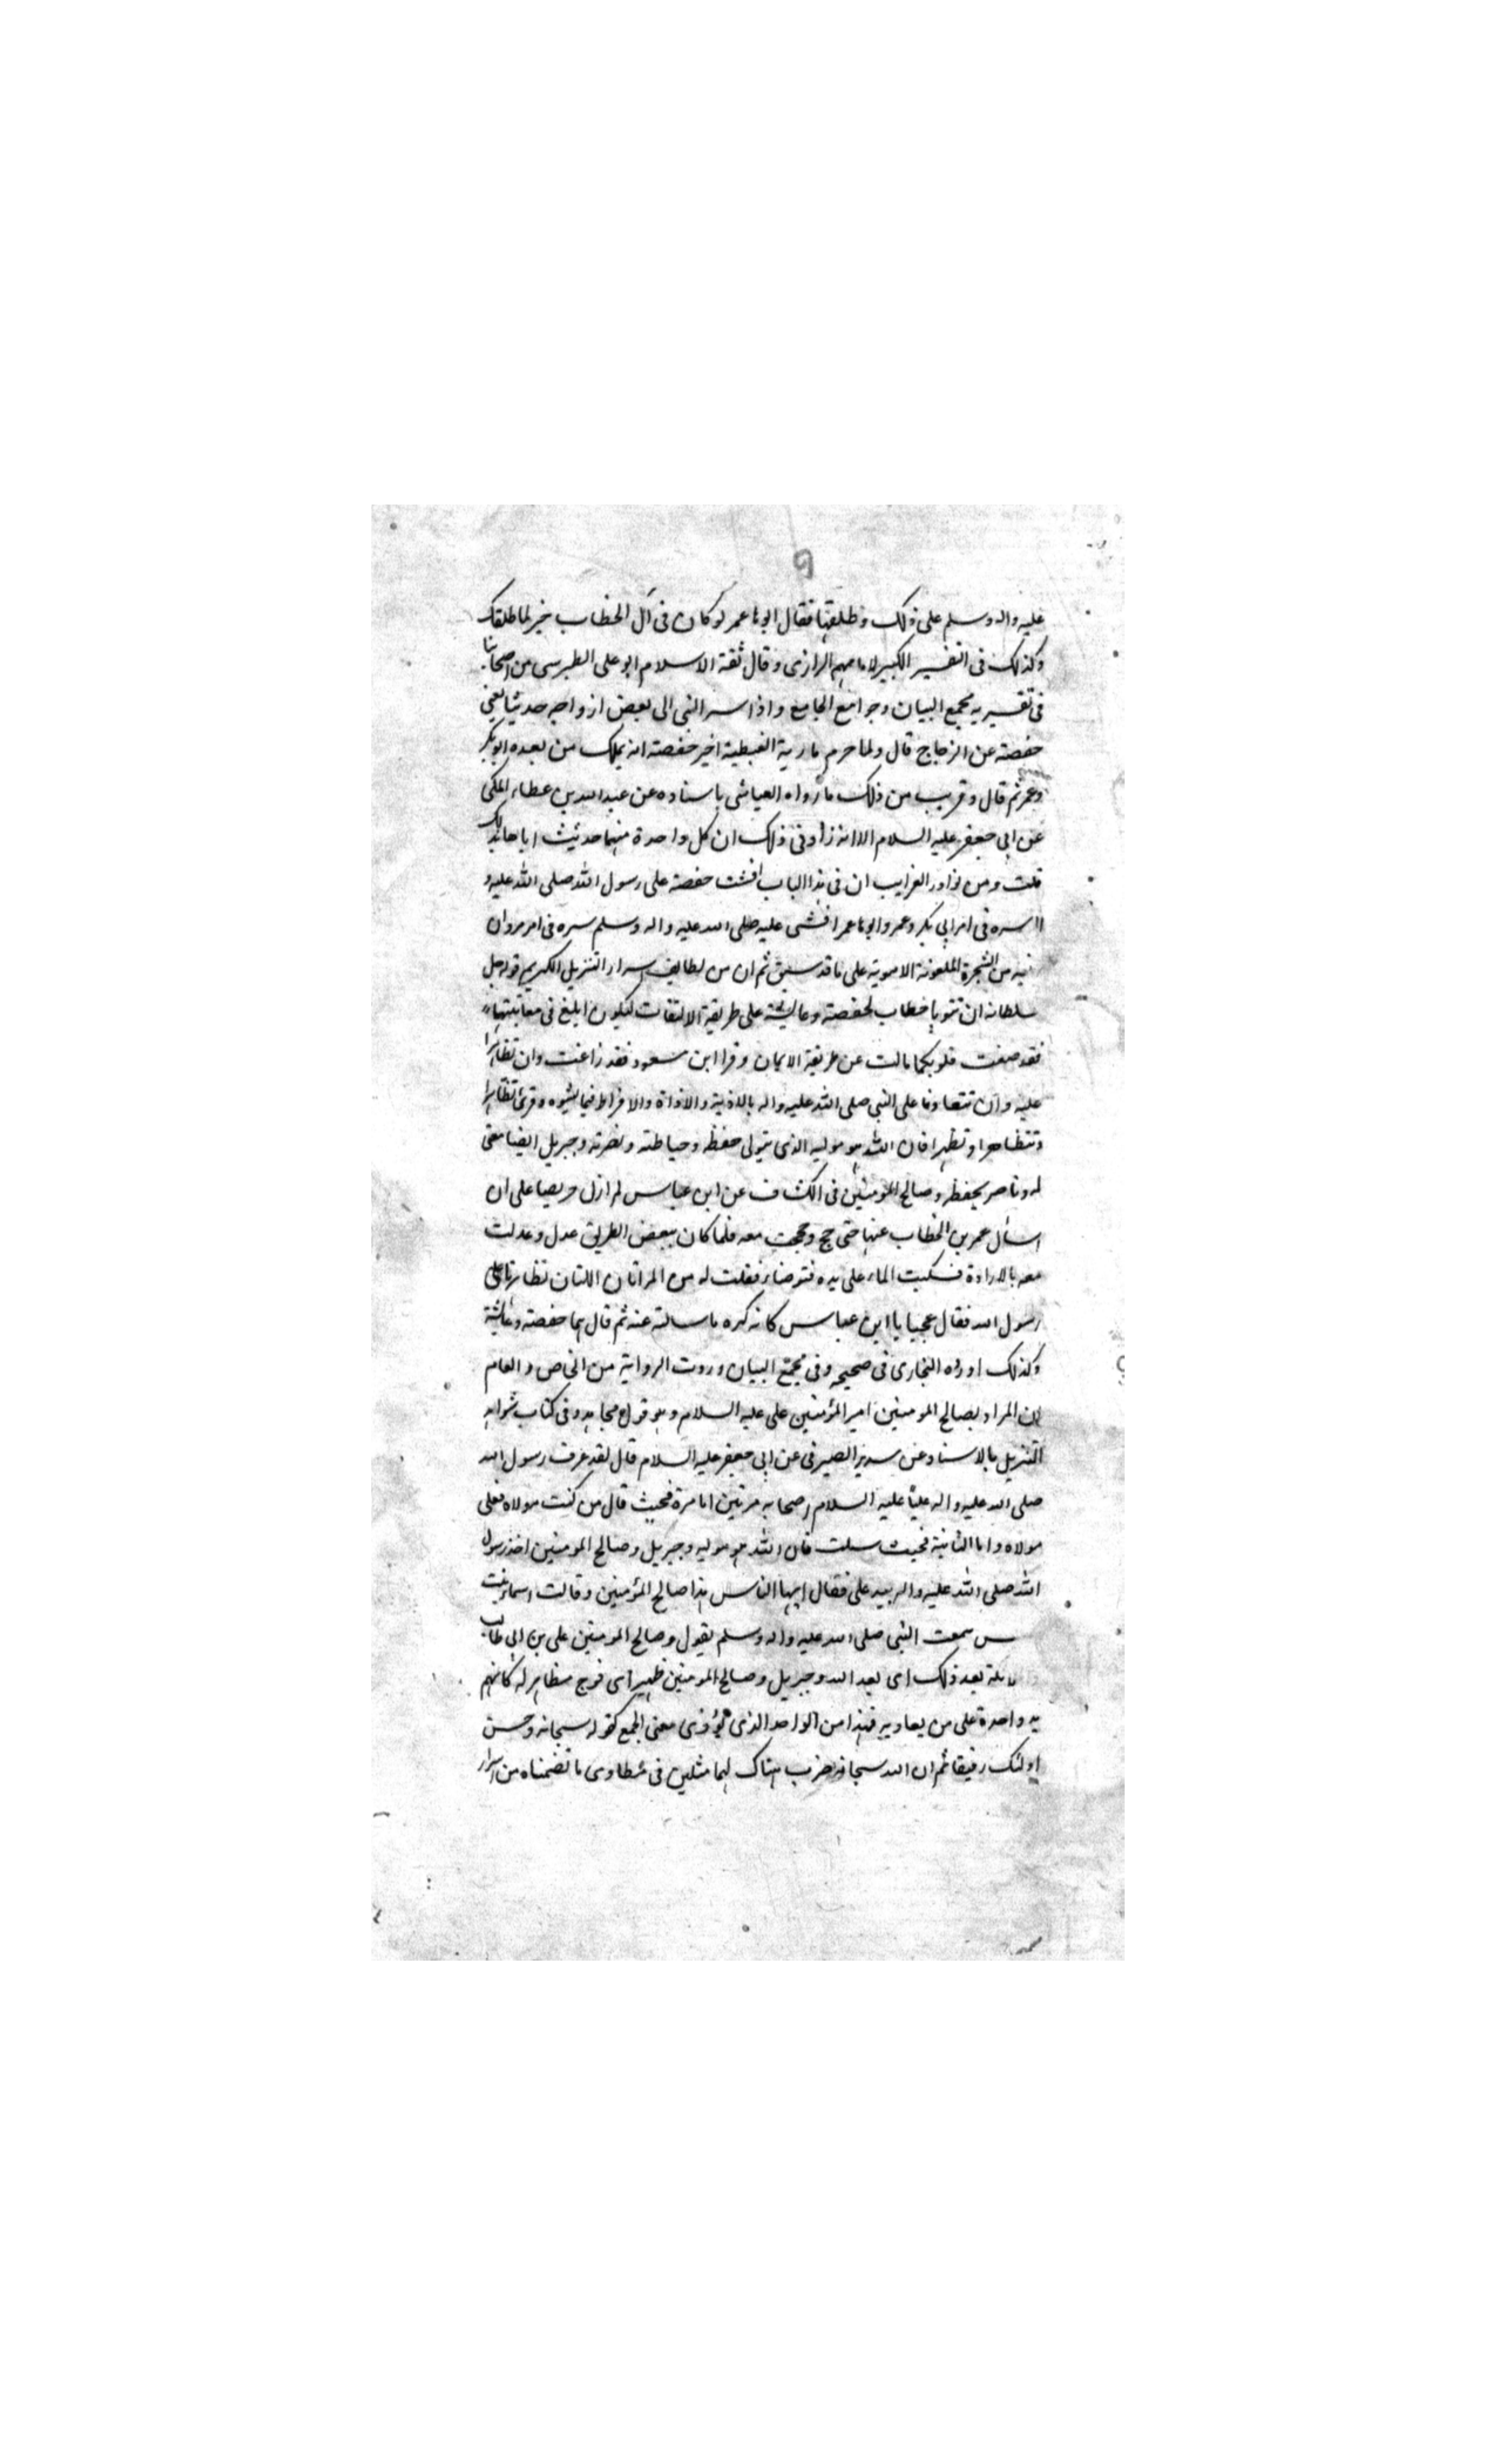 9
عليه واله وسلم على ذلك وطلقها فقال ابوها عمر لو كان فى آل الخطاب خير لما طلقك
وكذلك فى التفسير الكبير لامامهم الرازى وقال ثقة الاسلام ابو على الطبرسى من اصحابنا
فى تفسيريه مجمع البيان وجوامع الجامع واذ اسر النبى الى بعض ازواجه حديثا يعنى
حفصة عن الزجاج قال ولما حرم مارية القبطية اخبر حفصة انه يملك من بعده ابوبكر
وعمر ثم قال وقريب من ذلك ما رواه العياشى باسناده عن عبد الله بن عطاء المكى
عن ابى جعفر عليه السلام الا انه زاد فى ذلك ان كل واحدة منهما حدثت اباها بذلك
قلت ومن نوادر الغرايب ان فى هذا الباب افشت حفصة على رسول الله صلى الله عليه و
سره فى امر ابى بكر وعمر وابوها عمر افشى عليه صلى الله عليه واله وسلم سره فى امر مروان
من الشجرة الملعونة الاموية على ما قد سبق ثم ان من لطايف اسرار التنزيل الكريم قوله جل
سلطانه ان تتوبا خطاب لحفصة وعايشة على طريقة الالتفات ليكون ابلغ فى معاتبتهما
فقد صغت قلوبكما مالت عن طريقة الايمان وقرا ابن مسعود فقد زاغت وان تظاهرا
عليه وان تتعاونا على النبى صلى الله عليه واله بالاذية والافراط فيما يسوه وقرئ تظاهرا
وتتظاهرا وتظهرا فان الله هو موليه الذى يتولى حفظه وحياطته ونصرته وجبريل ايضا معين
له وناصر يحفظه وصالح المومنين فى الكشاف عن ابن عباس لم ازل حريصا على ان
اسال عمر بن الخطاب عنهما حتى حج وحججت معه فلما كان ببعض الطريق عدل وعدلت
معه بالاداوة فسكبت الماء على يده فتوضاء فقلت له من المراتان اللتان تظاهرتا على
رسول الله فقال عجبا يا ابن عباس كانه كره ما سالته عنه ثم قال هما حفصة وعايشة
وكذلك اورده البخارى فى صحيحه وفى مجمع البيان وروت الرواية من الخاص والعام
ان المراد بصالح المومنين امير المؤمنين على عليه السلام وهو قول مجاهد وفى كتاب شواهد
التنزيل بالاسناد عن سدير الصيرفى عن ابى جعفر عليه السلام قال لقد عرف رسول الله
صلى الله عليه واله عليا عليه السلام اصحابه مرتين اما مرة فحيث قال من كنت مولاه فعلى
مولاه واما الثانية فحيث سلت فان الله هو موليه وجبريل وصالح المومنين اخذ رسول
الله صلى الله عليه واله بيد على فقال ايها الناس هذا صالح المؤمنين وقالت اسماء بنت
س سمعت النبى صلى الله عليه واله وسلم يقول وصالح المومنين على بن ابى طالب
بعد ذلك اى بعد الله وجبريل وصالح المومنين ظهير اى فوج مظاهر له كانهم
يد واحدة على من يعاديه فهذا من الواحد الذى يؤدى معنى الجمع كقوله سبحانه وحسن
اولئك رفيقا ثم ان الله سبحانه ضرب هناك لهما مثلين فى مطاوى ما تضمناه من اسرار